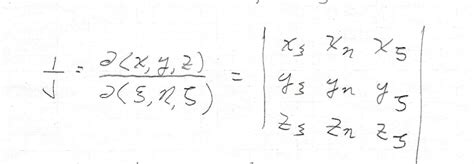 1/J = ∂(x, y, z)/∂(ξ, η, ζ) = | x_ξ x_η x_ζ |
| y_ξ y_η y_ζ |
| z_ξ z_η z_ζ |